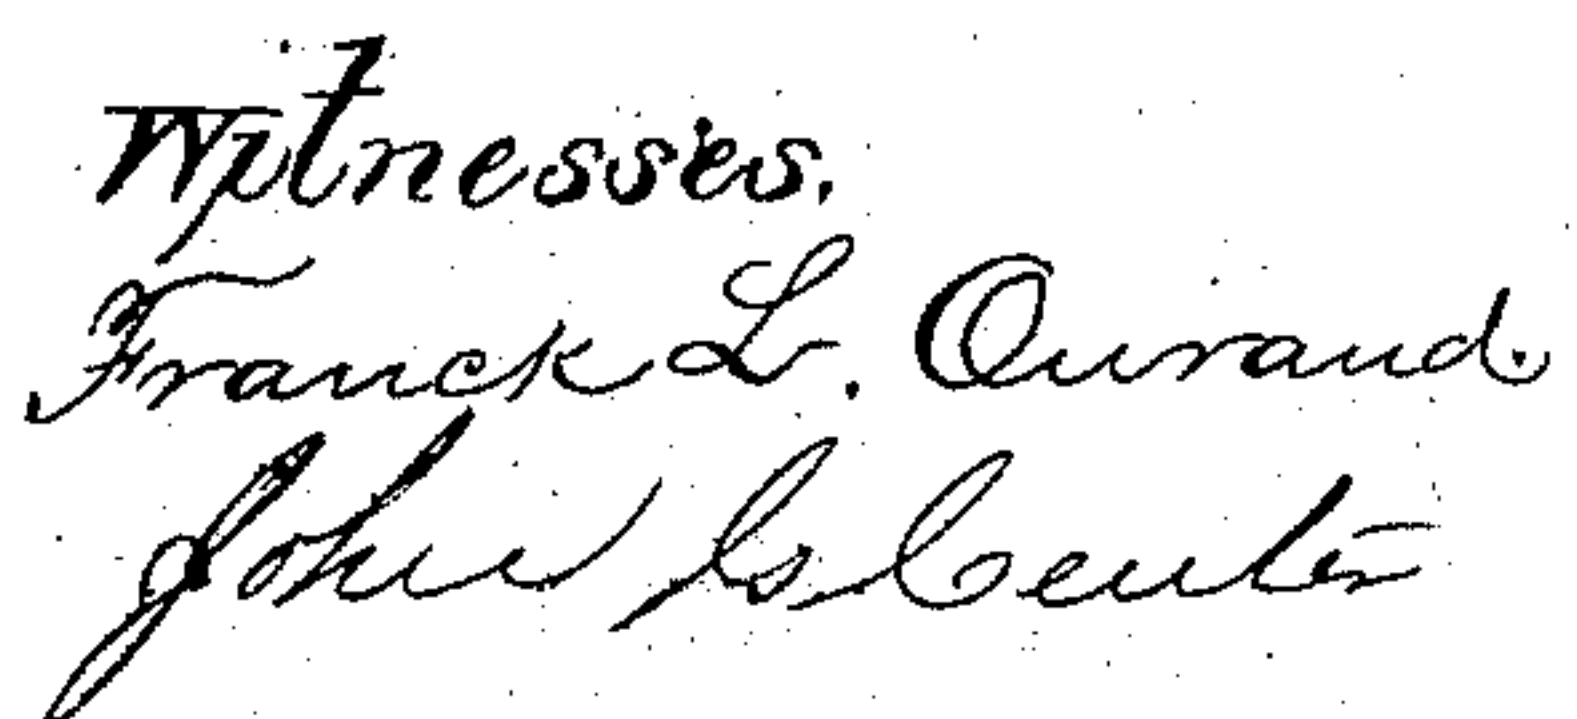 Witnesses.
Franck L. Ourand.
John S. Center